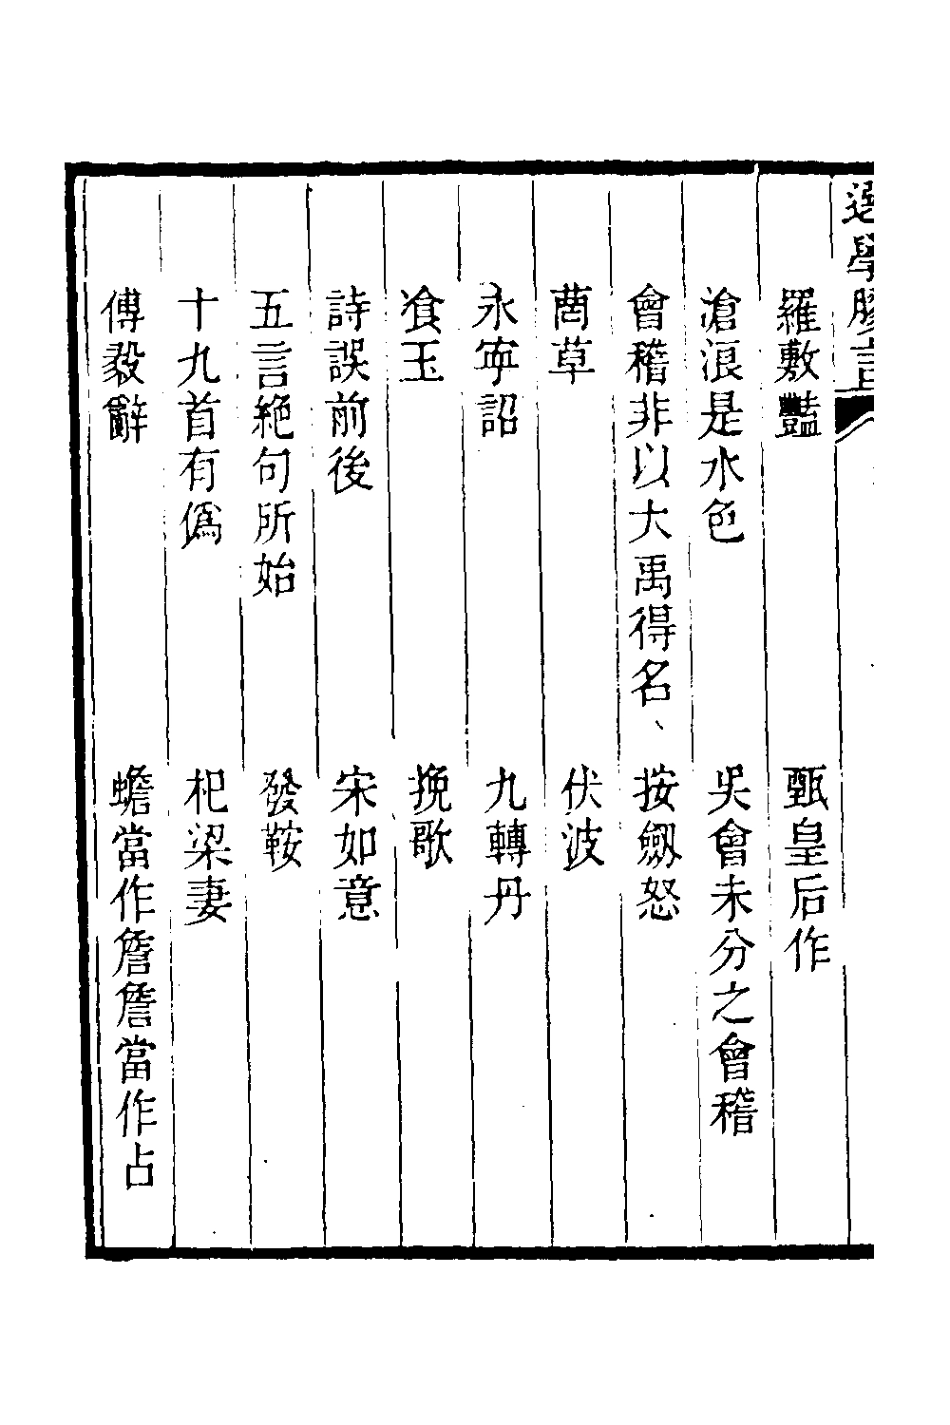 選學膠言
羅敷豔　甄皇后作
滄浪是水色　吳會未分之會稽
會稽非以大禹得名、　按劒怒
茵草　伏波
永寧詔　九轉丹
飡玉　挽歌
詩誤前後　宋如意
五言絕句所始　發鞍
十九首有僞　杞梁妻
傅毅辭　蟾當作詹詹當作占